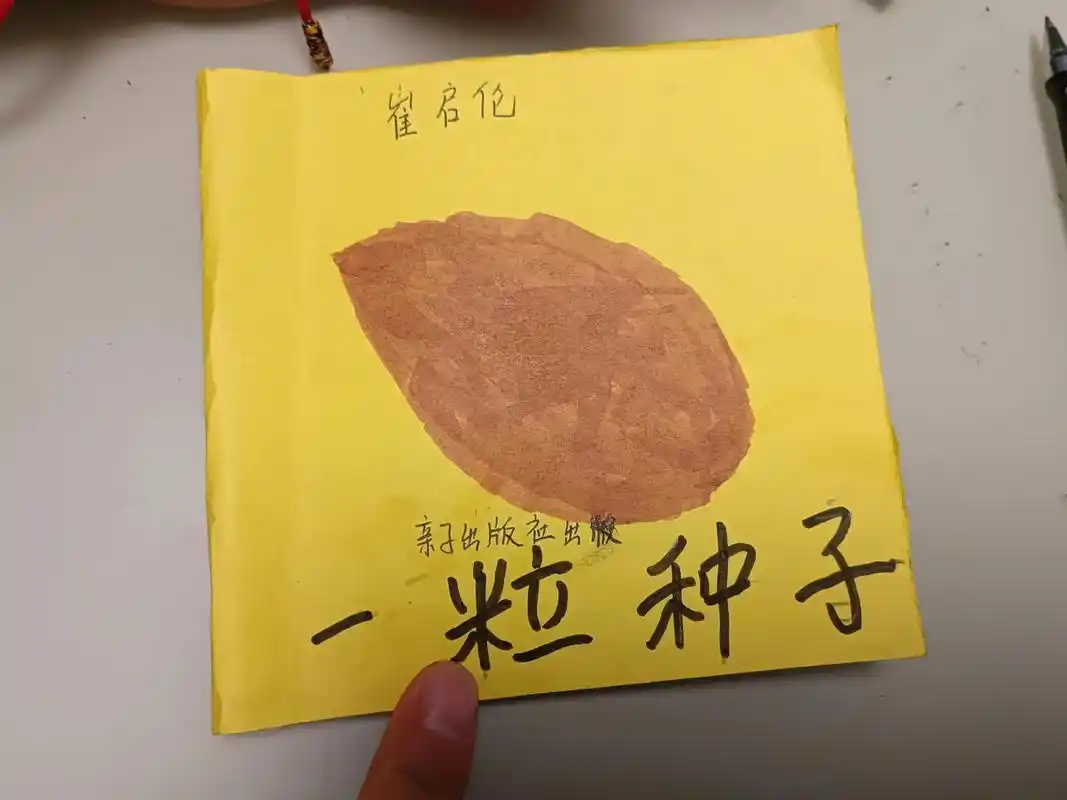 崔启伦
亲子出版社出版
一粒种子